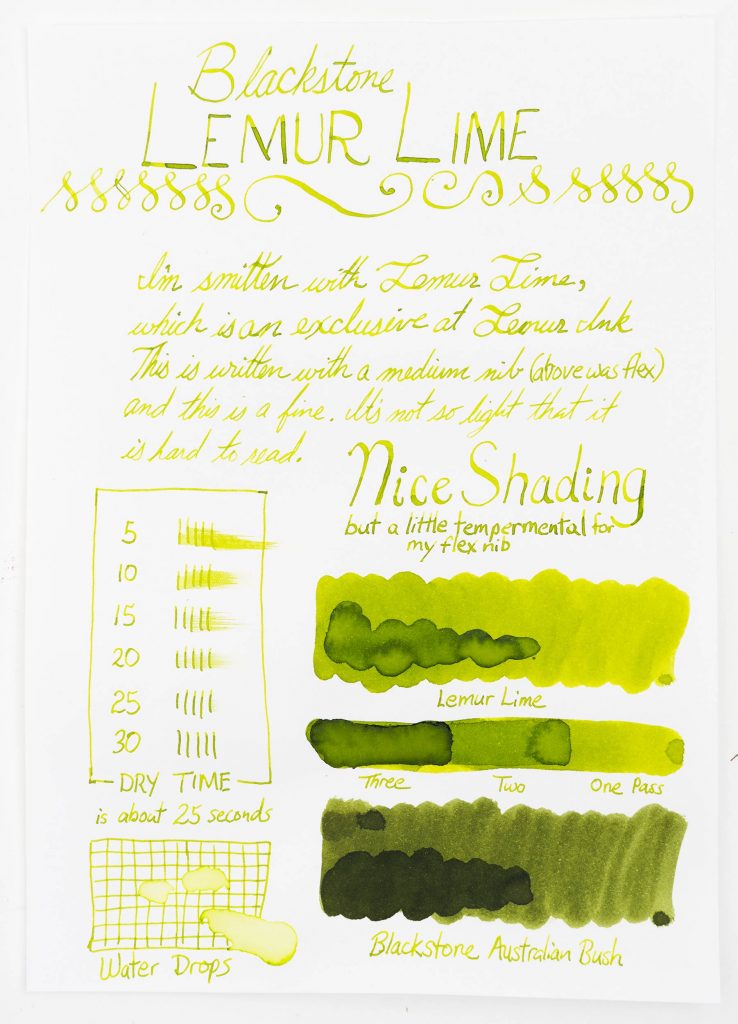 Blackstone
LEMUR LIME
I'm smitten with Lemur Lime,
which is an exclusive at Lemur Ink
This is written with a medium nib (above was flex)
and this is a fine. It's not so light that it
is hard to read.
Nice Shading
but a little tempermental for
my flex nib
5
10
15
20
25
30
DRY TIME
is about 25 seconds
Lemur Lime
Three Two One Pass
Water Drops
Blackstone Australian Bush